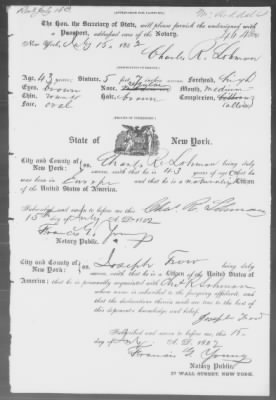 (APPLICATION FOR PASSPORT.)
The Hon. the Secretary of State, will please furnish the undersigned with
a Passport,
New York, July 15, 1852
Charles R. Lohman
Age, 43 years, Stature, 5 feet 7 inches Forehead, high
Eyes, brown Nose, regular Mouth, medium
Chin, round Hair, brown Complexion, sallow
Face, oval
State of New York.
City and County of New York: ss. Charles R. Lohman being duly
sworn, saith that he is 43 years of age that he
was born in Europe and that he is a naturalized Citizen
of the United States of America.
Subscribed and sworn to before me this
15th day of July A. D. 1852
Chas R Lohman
Francis G. Young
Notary Public.
City and County of New York: ss. Joseph Trow being duly
sworn, saith that he is a Citizen of the United States of
America; that he is personally acquainted with Chs R Lohman
whose name is subscribed to the foregoing affidavit, and
that the declarations therein made are true to the best of
this deponent's knowledge and belief.
Joseph Trow
Subscribed and sworn to before me, this 15
day of July A. D. 1852
Francis G Young
Notary Public.
57 WALL STREET, NEW YORK.